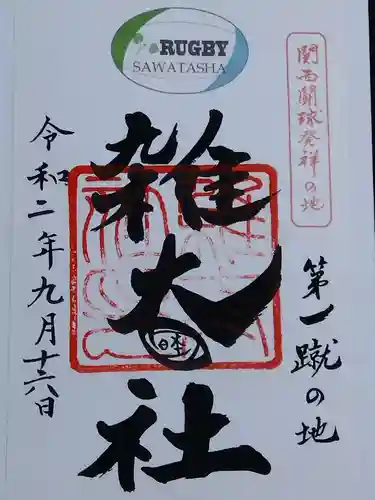 RUGBY
SAWATASHA
関西闘球発祥の地
第一蹴の地
雑太社
令和二年九月十六日